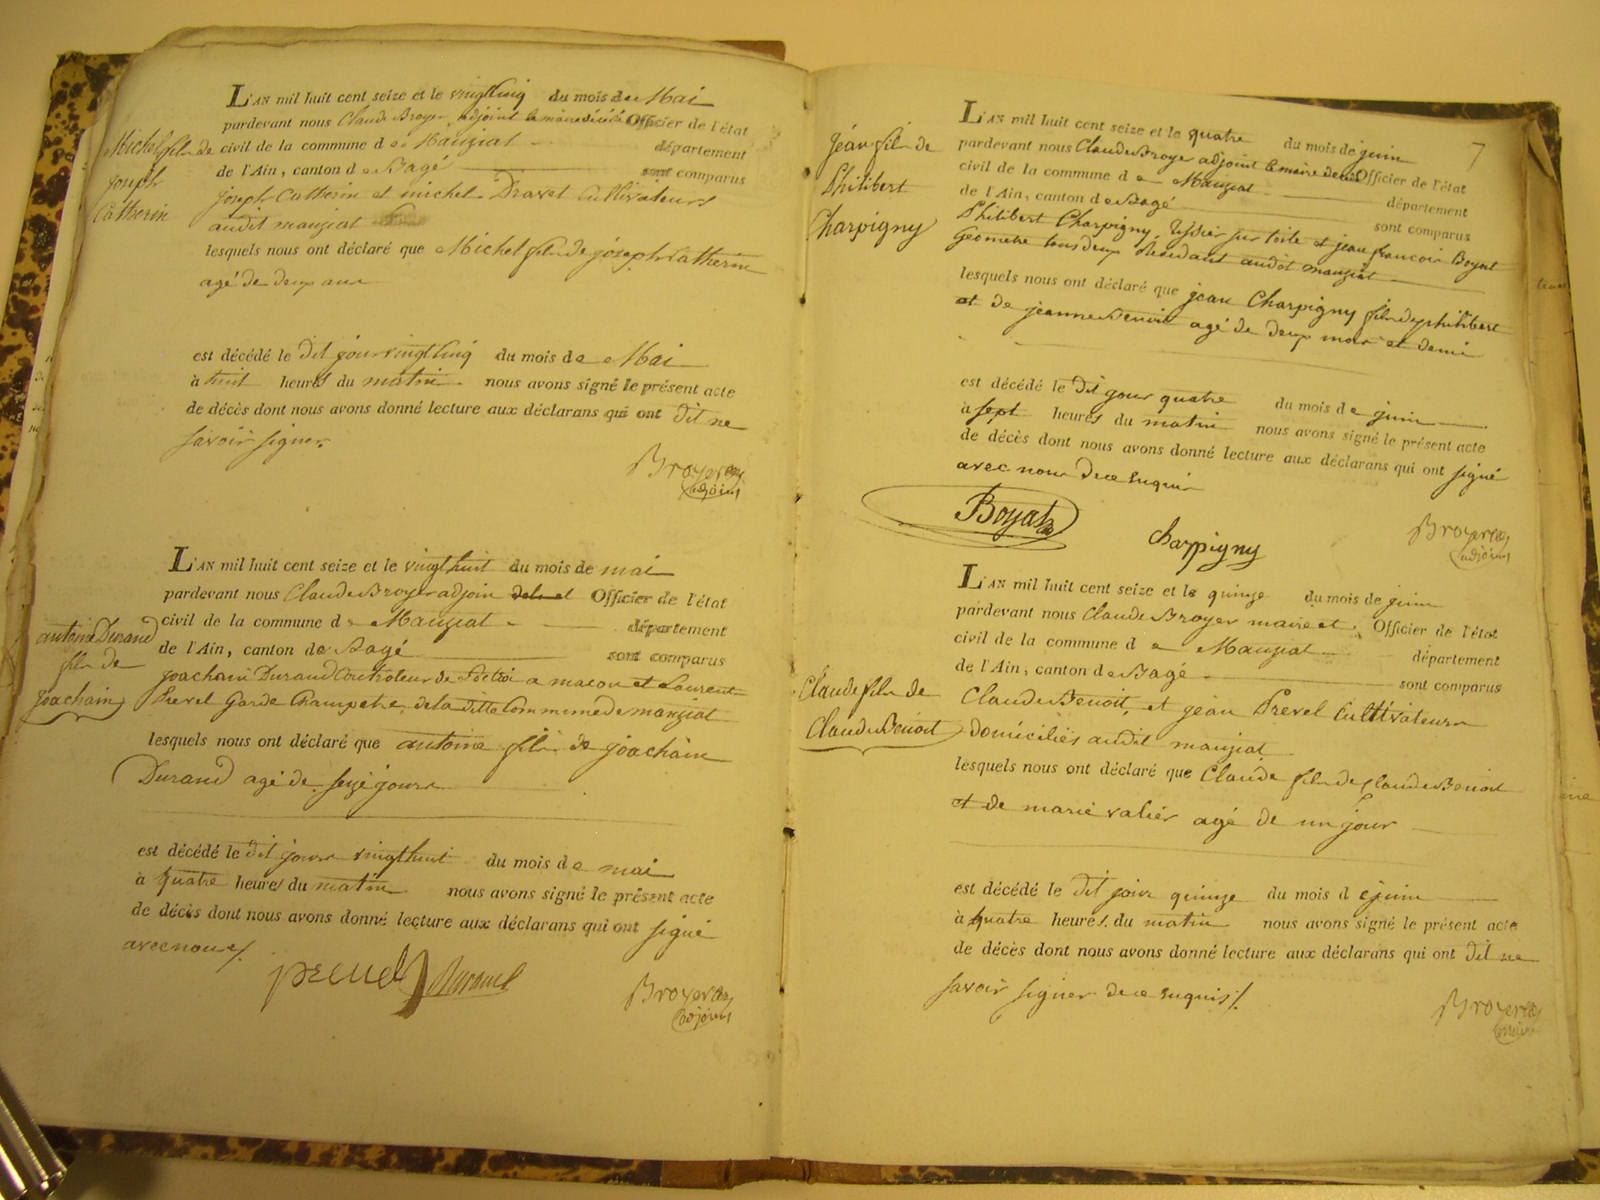 Michel fils de
joseph
Catherin
L'AN mil huit cent seize et le vingtcinq du mois de Mai
pardevant nous Claude Broyer adjoint le maire décédé Officier de l'état
civil de la commune de Manziat département
de l'Ain, canton de Bagé sont comparus
joseph Catherin et michel Dravet Cultivateurs
audit manziat
lesquels nous ont déclaré que Michel fils de joseph Catherin
agé de deux ans
est décédé le dit jour vingtcinq du mois de Mai
à huit heures du matin nous avons signé le présent acte
de décès dont nous avons donné lecture aux déclarans qui ont dit ne
savoir signer
Broyer
adjoint
antoine Durand
fils de
joachain
L'AN mil huit cent seize et le vingthuit du mois de mai
pardevant nous Claude Broyer adjoin Officier de l'état
civil de la commune de Manziat département
de l'Ain, canton de Bagé sont comparus
joachain Durand Controleur de a macon et Laurent
Prevel Garde Champetre de la ditte Commune de manziat
lesquels nous ont déclaré que antoine fils de joachain
Durand agé de seize jours
est décédé le dit jours vingthuit du mois de mai
à quatre heures du matin nous avons signé le présent acte
de décès dont nous avons donné lecture aux déclarans qui ont signé
avec nous
prevel Durand
Broyer
adjoint
7
jean fils de
Philibert
Charpigny
L'AN mil huit cent seize et le quatre du mois de juin
pardevant nous Claude Broyer adjoint le maire Officier de l'état
civil de la commune de Manziat département
de l'Ain, canton de Bagé sont comparus
Philibert Charpigny tissier sur toile et jean francois Boyat
Géometre tous deux Residant audit manziat
lesquels nous ont déclaré que jean Charpigny fils de philibert
et de jeanne Benoit agé de deux mois et demi
est décédé le dit jour quatre du mois de juin
à sept heures du matin nous avons signé le présent acte
de décès dont nous avons donné lecture aux déclarans qui ont signé
avec nous de ce enquis
Boyat
Charpigny
Broyer
adjoint
Claude fils de
Claude Benoit
L'AN mil huit cent seize et le quinze du mois de juin
pardevant nous Claude Broyer maire et Officier de l'état
civil de la commune de Manziat département
de l'Ain, canton de Bagé sont comparus
Claude Benoit et jean Prevel Cultivateurs
domiciliés audit manziat
lesquels nous ont déclaré que Claude fils de Claude Benoit
et de marie valier agé de un jour
est décédé le dit jour quinze du mois de juin
à quatre heures du matin nous avons signé le présent acte
de décès dont nous avons donné lecture aux déclarans qui ont dit ne
savoir signer de ce enquis
Broyer